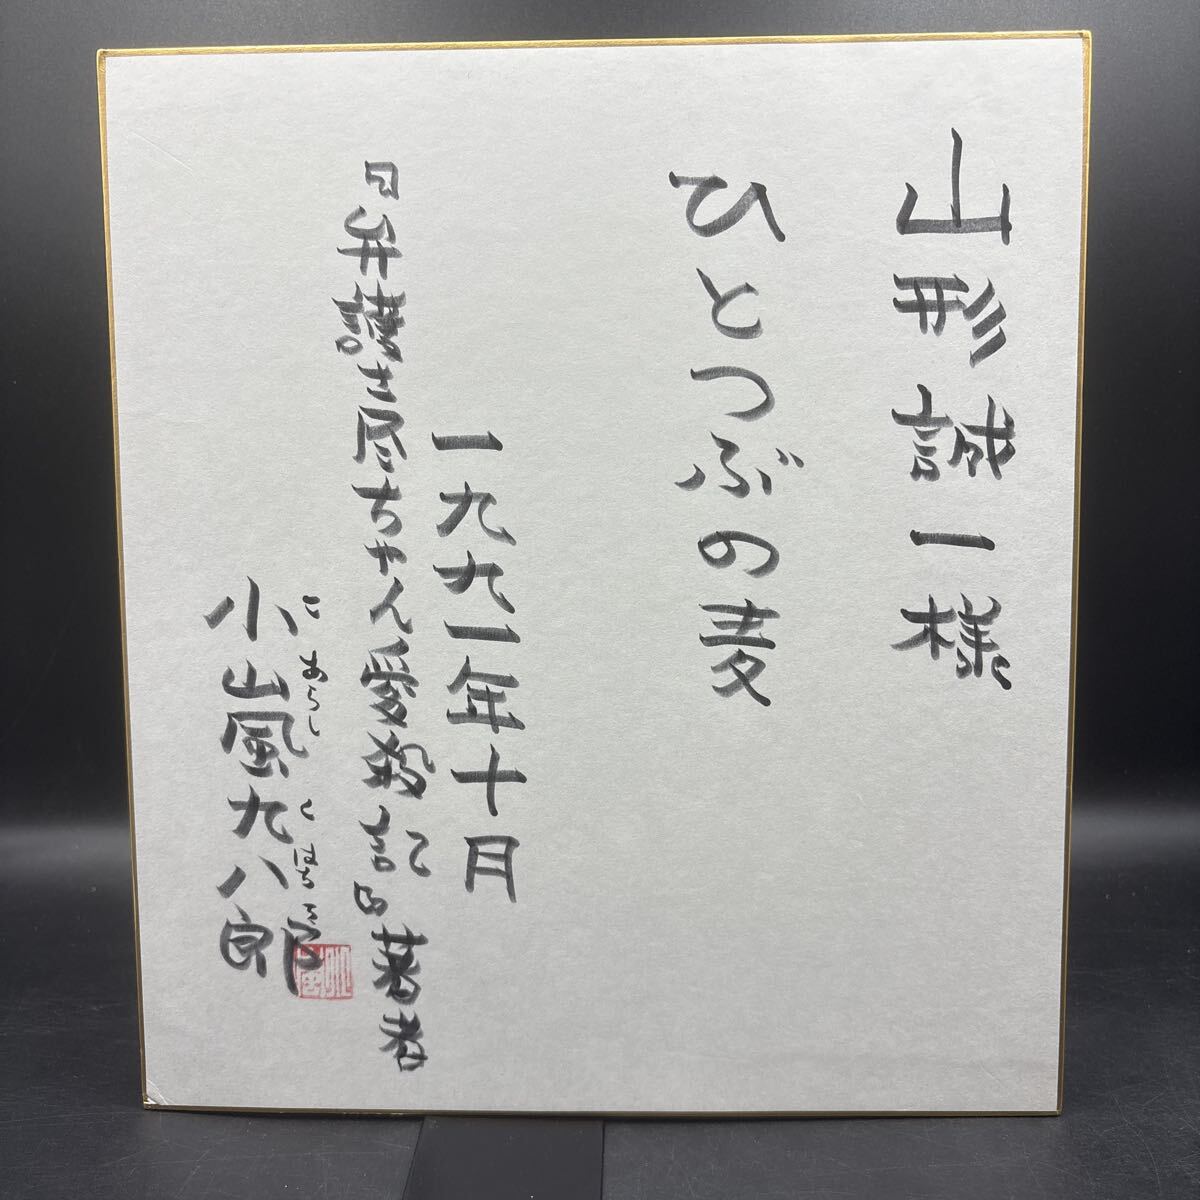 山形誠一様
ひとつぶの麦
一九九一年十月
『弁護士尽ちゃん愛殺記』著者
こあらし くはちろう
小嵐九八郎